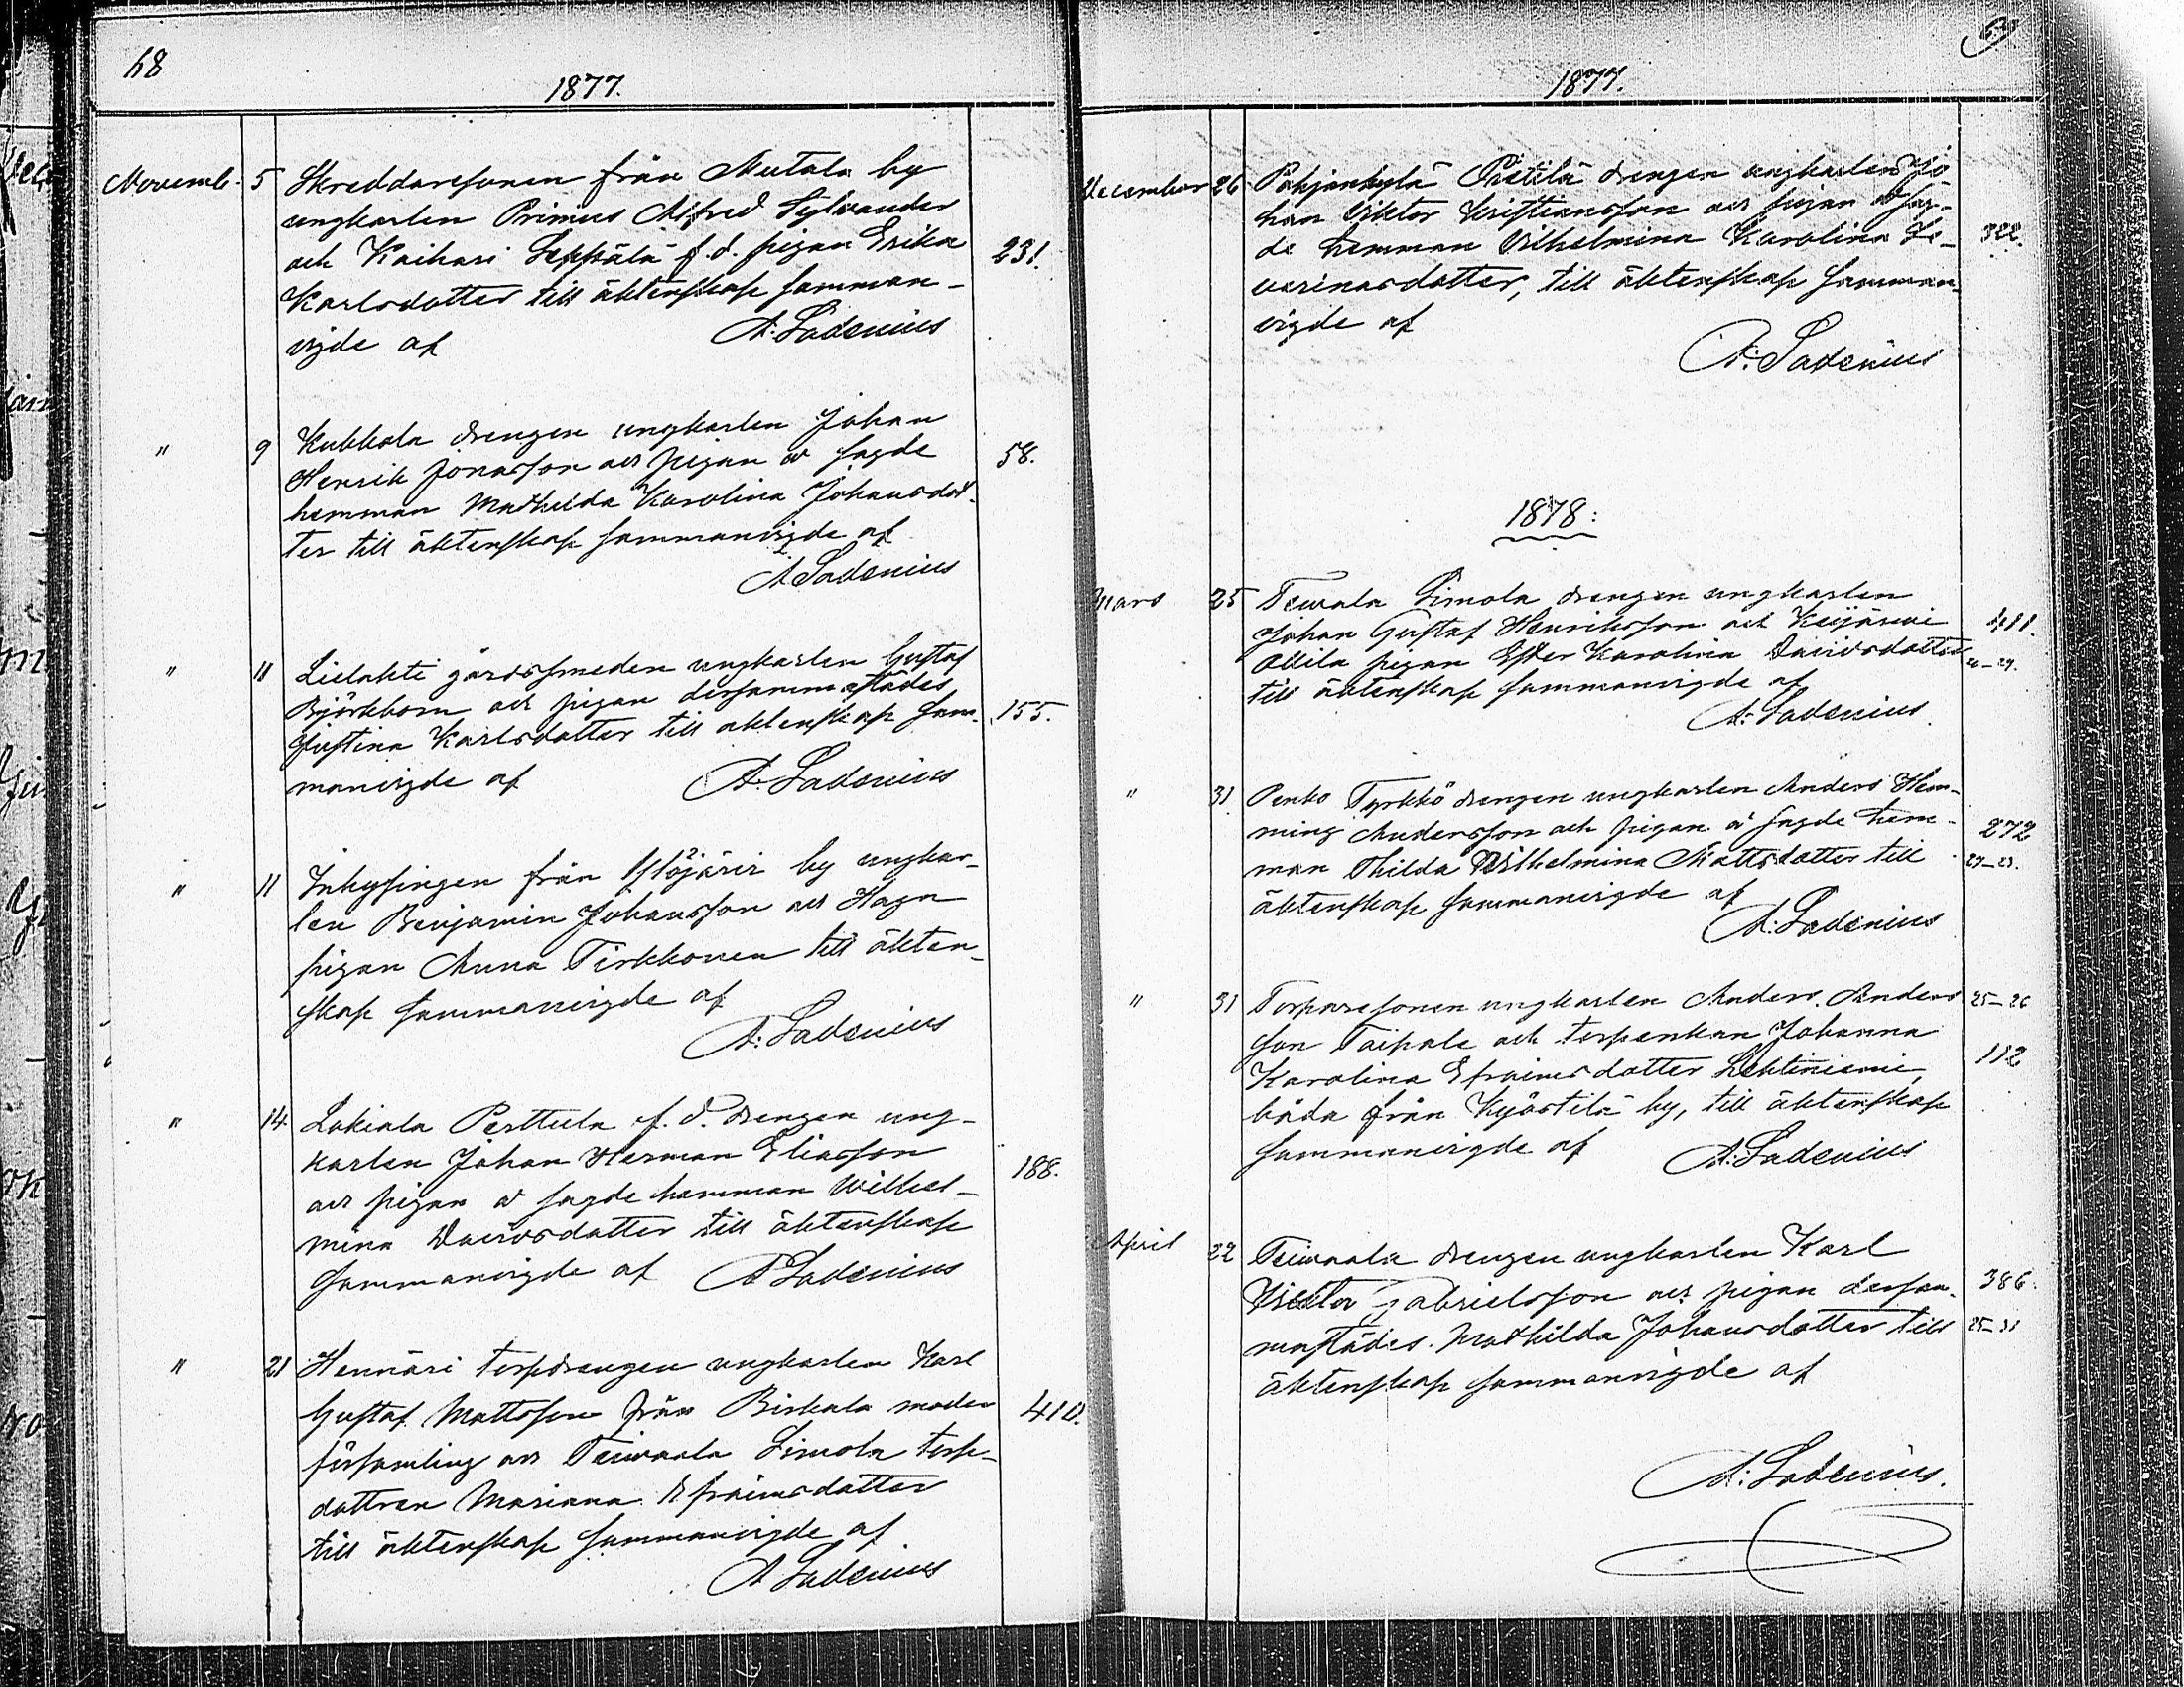 68
1877.
Novemb. 5 Skreddaresonen från Mutala by
ungkarlen Primus Alfred Sylvander
och Kaihari Seppälä f. d. pigan Erika 231.
Karlsdotter till äktenskap samman-
vigde af A: Ladenius
" 9 Kukkola drengen ungkarlen Johan
Henrik Jonasson och pigan å sagde 58.
hemman Mathilda Karolina Johansdot-
ter till äktenskap sammanvigde af
A Ladenius
" 11 Lielahti gårdssmeden ungkarlen Gustaf
Björkbom och pigan dersammastädes
Justina Karlsdotter till äktenskap sam- 155.
manvigde af A. Ladenius
" 11 Inhysingen från by ungkar-
len Benjamin Johansson och Haga
pigan Anna Tirkkonen till äkten-
skap sammanvigde af
A: Ladenius
" 14. Lakiala Perttula f. d. drengen ung-
karlen Johan Herman Eliasson
och pigan å sagde hemman Wilhel- 188.
mina Davidsdotter till äktenskap
sammanvigde af A Ladenius
" 21 Hennäri torpdrengen ungkarlen Karl
Gustaf Mattsson från Birkala moder 410.
församling och Teivaala Simola torp-
dottren Mariana Efraimsdotter
till äktenskap sammanvigde af
A Ladenius
69
1877.
December 26 Pohjankylä Pietilä drengen ungkarlen Jo-
han Viktor Kristiansson och pigan å sag-
de hemman Vilhelmina Karolina Se- 322.
verinasdotter, till äktenskap samman-
vigde af
A: Ladenius
1878:
Mars 25 Teivala Simola drengen ungkarlen
Johan Gustaf Henriksson och Keijärvi 411.
Ollila pigan Ester Karolina Davidsdotter
till äktenskap sammanvigde af
A: Ladenius.
" 31 Penko Tyrkkö drengen ungkarlen Anders Hem-
ming Andersson och pigan å sagde hem- 272
man Hilda Vilhelmina Mattsdotter till
äktenskap sammanvigde af
A: Ladenius
" 31 Torparesonen ungkarlen Anders Anders 25-26
son Taipale och torpenkan Johanna
Karolina Efraimsdotter Lehtiniemi, 112
båda från Kyöstilä by, till äktenskap
sammanvigde af A: Ladenius
April 22 Teivaala drengen ungkarlen Karl
Viktor Gabrielsson och pigan dersam- 386.
mastädes Mathilda Johansdotter till 25-31
äktenskap sammanvigde af
A: Ladenius.